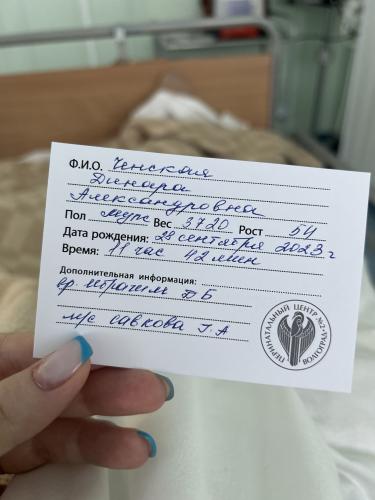 Ф.И.О. Ченская
Динара
Александровна
Пол муж Вес 3720 Рост 54
Дата рождения: 28 сентября 2023 г
Время: 11 час 42 мин
Дополнительная информация:
вр. Ибрагим Д Б
м/с Савкова Г. А
ПЕРИНАТАЛЬНЫЙ ЦЕНТР №2 • ВОЛГОГРАД •